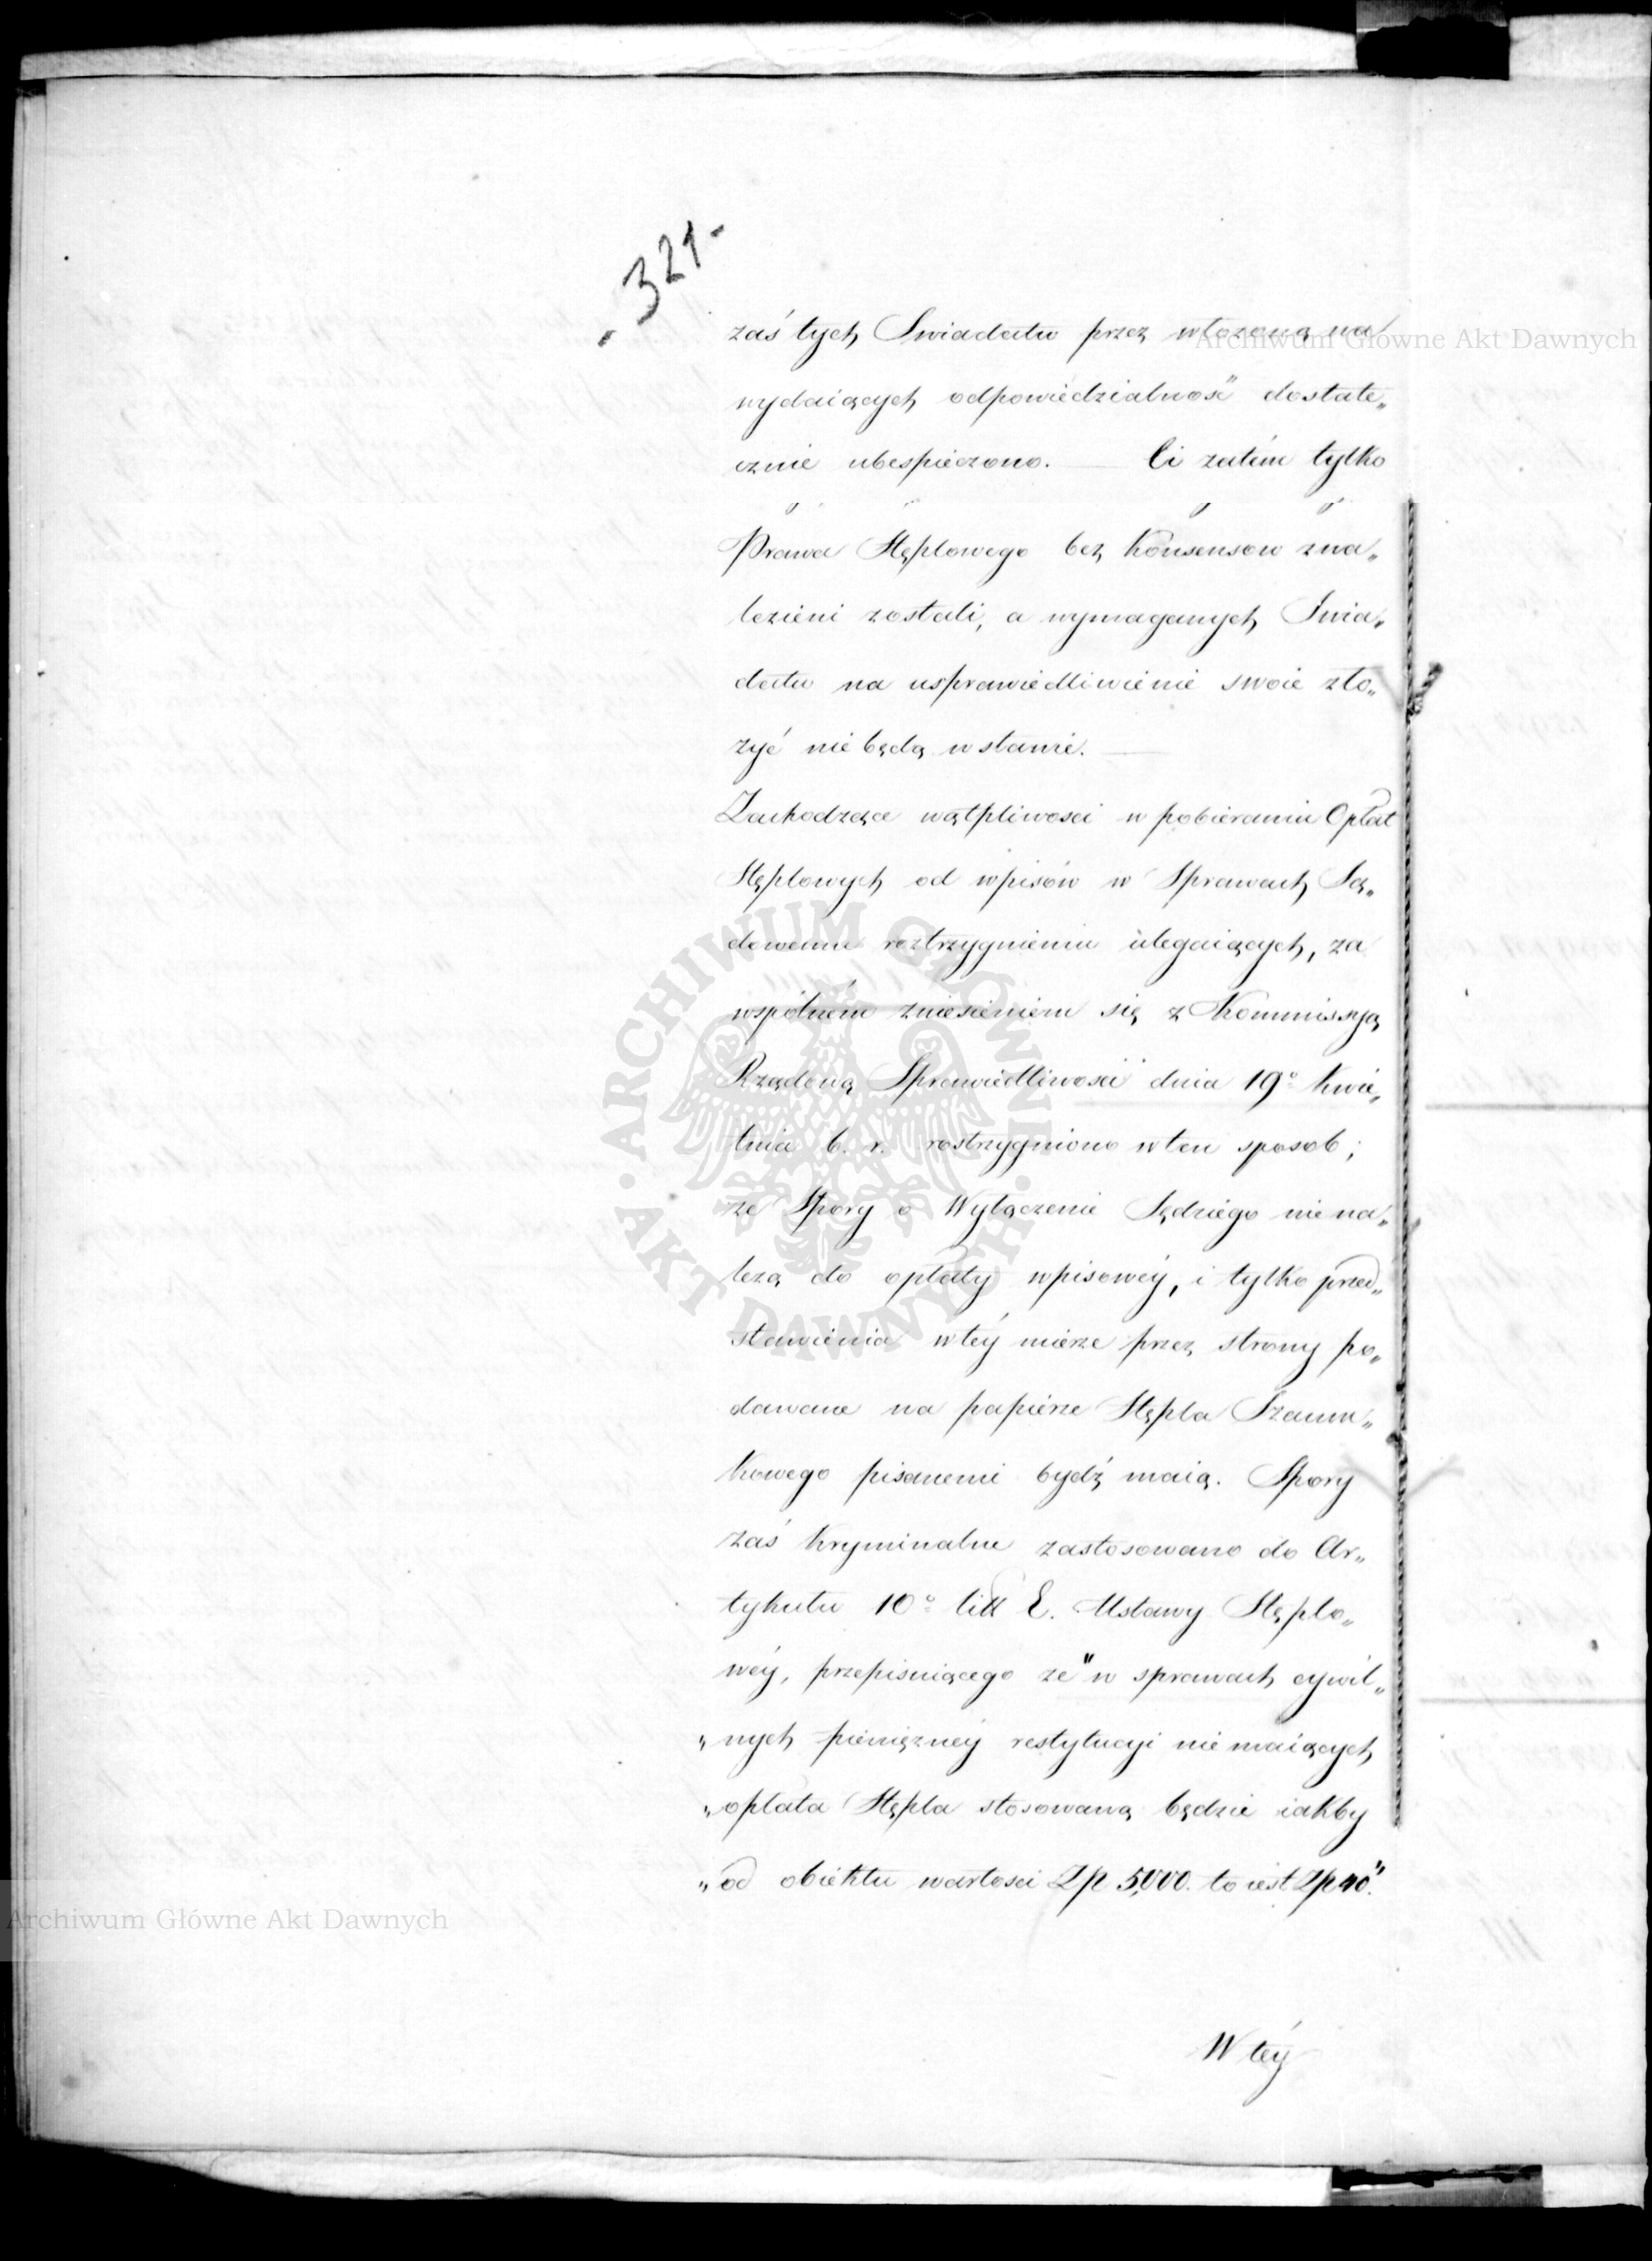 - 321 -
zaś tych Swiadectw przez włożoną na
wydaiących odpowiedzialność dostate„
cznie ubespieczono. — Ci zatém tylko
Prawa Stęplowego bez Konsensow zna„
lezieni zostali, a wymaganych Świa„
dectw na usprawiedliwienie swoie zło„
żyć nie będą w stanie. —
Zachodzące wątpliwosci w pobieraniu Opłat
Stęplowych od wpisów w Sprawach Są„
dowemu roztrzygnieniu ulegaiących, za
wspólném zniesieniem się z Kommissyą
Rządową Sprawiedliwosci dnia 19° Kwie„
tnia b. r. rostrzygniono w ten sposob;
ze Spory o Wyłączenie Sędziego nie na„
leżą do opłaty wpisowéy, i tylko przed„
stawienia w téy mierze przez strony po„
dawane na papierze Stępla Szacun„
kowego pisanemi bydź maią. Spory
zaś Kryminalne zastosowano do Ar„
tykułu 10° litt E. Ustawy Stęplo„
wéy, przepisuiącego ze "w sprawach cywil„
„nych pieniężnéy restytucyi nie maiących
„opłata Stępla stosowaną będzie iakby
„od obiektu wartosci Zp 5,000. to iest Zp 40."
W téy
Archiwum Główne Akt Dawnych
Archiwum Główne Akt Dawnych
· ARCHIWUM GŁÓWNE · AKT DAWNYCH